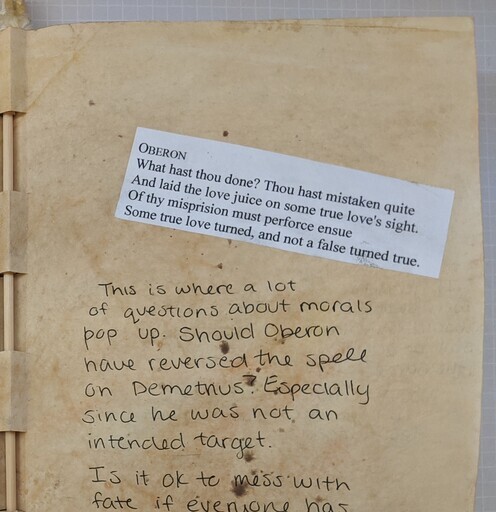 OBERON
What hast thou done? Thou hast mistaken quite
And laid the love juice on some true love's sight.
Of thy misprision must perforce ensue
Some true love turned, and not a false turned true.
This is where a lot
of questions about morals
pop up. Should Oberon
have reversed the spell
on Demetrius? Especially
since he was not an
intended target.
Is it ok to mess with
fate if everyone has